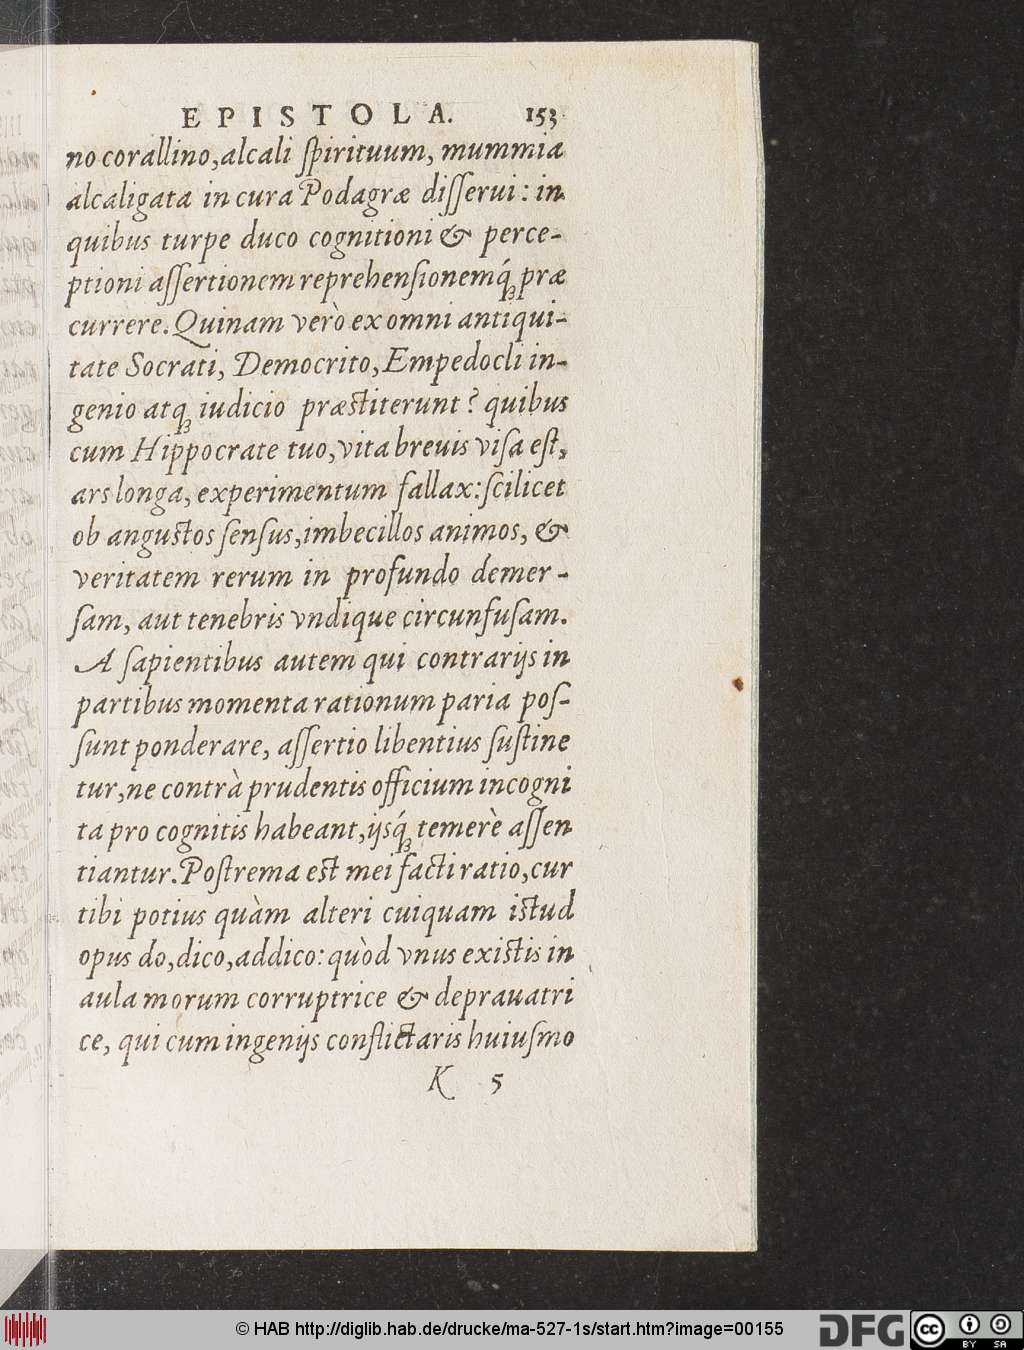 EPISTOLA. 153
no corallino, alcali ſpirituum, mummia
alcaligata in cura Podagræ diſſerui: in
quibus turpe duco cognitioni & perce-
ptioni aſſertionem reprehenſionemq́; præ
currere. Quinam verò ex omni antiqui-
tate Socrati, Democrito, Empedocli in-
genio atq; iudicio præstiterunt? quibus
cum Hippocrate tuo, vita breuis viſa eſt,
ars longa, experimentum fallax: ſcilicet
ob angustos ſenſus, imbecillos animos, &
veritatem rerum in profundo demer-
ſam, aut tenebris vndique circunfuſam.
A ſapientibus autem qui contrarijs in
partibus momenta rationum paria poſ-
ſunt ponderare, aſſertio libentius ſuſtine
tur, ne contrà prudentis officium incogni
ta pro cognitis habeant, ijsq́; temerè aſſen
tiantur. Poſtrema est mei facti ratio, cur
tibi potius quàm alteri cuiquam istud
opus do, dico, addico: quòd vnus existis in
aula morum corruptrice & deprauatri
ce, qui cum ingenijs conflictaris huiuſmo
K 5
© HAB http://diglib.hab.de/drucke/ma-527-1s/start.htm?image=00155
DFG
cc
BY SA